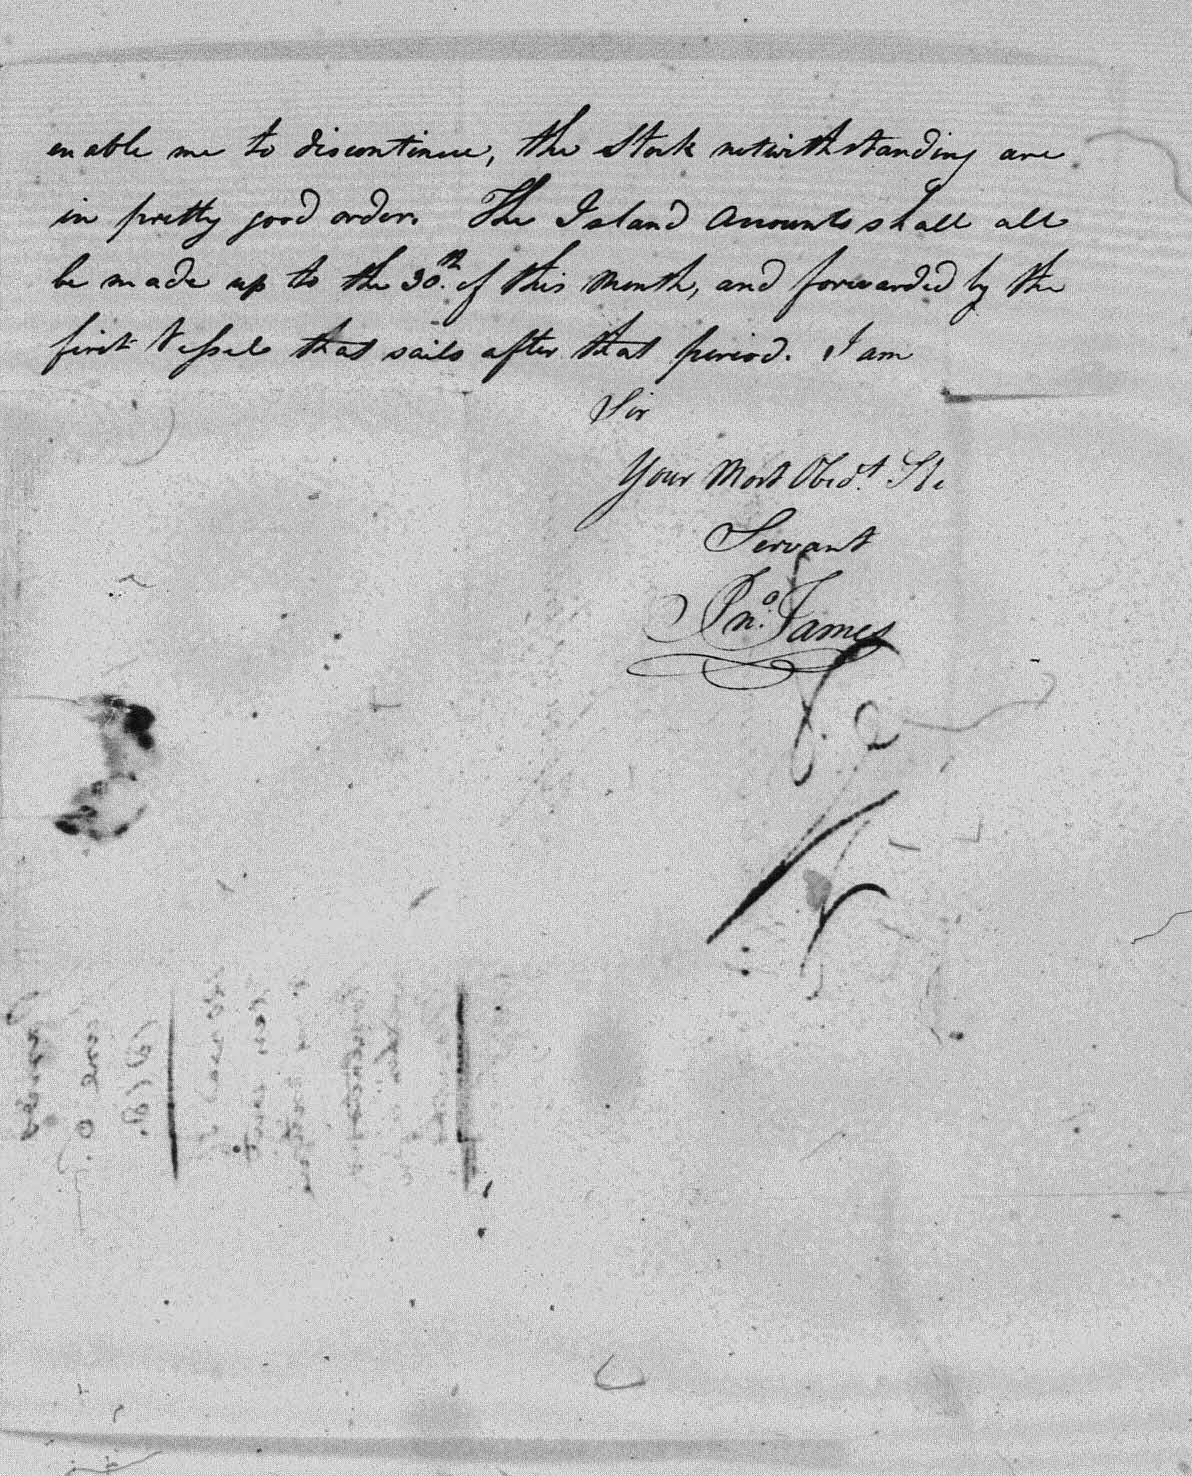 enable me to discontinue, the Stock notwithstanding are
in pretty good order. The Island Accounts shall all
be made up to the 30th. of this Month, and forwarded by the
first Vessels that sails after that period. I am
Sir
Your Most Obedt. St.
Servant
Jno. James